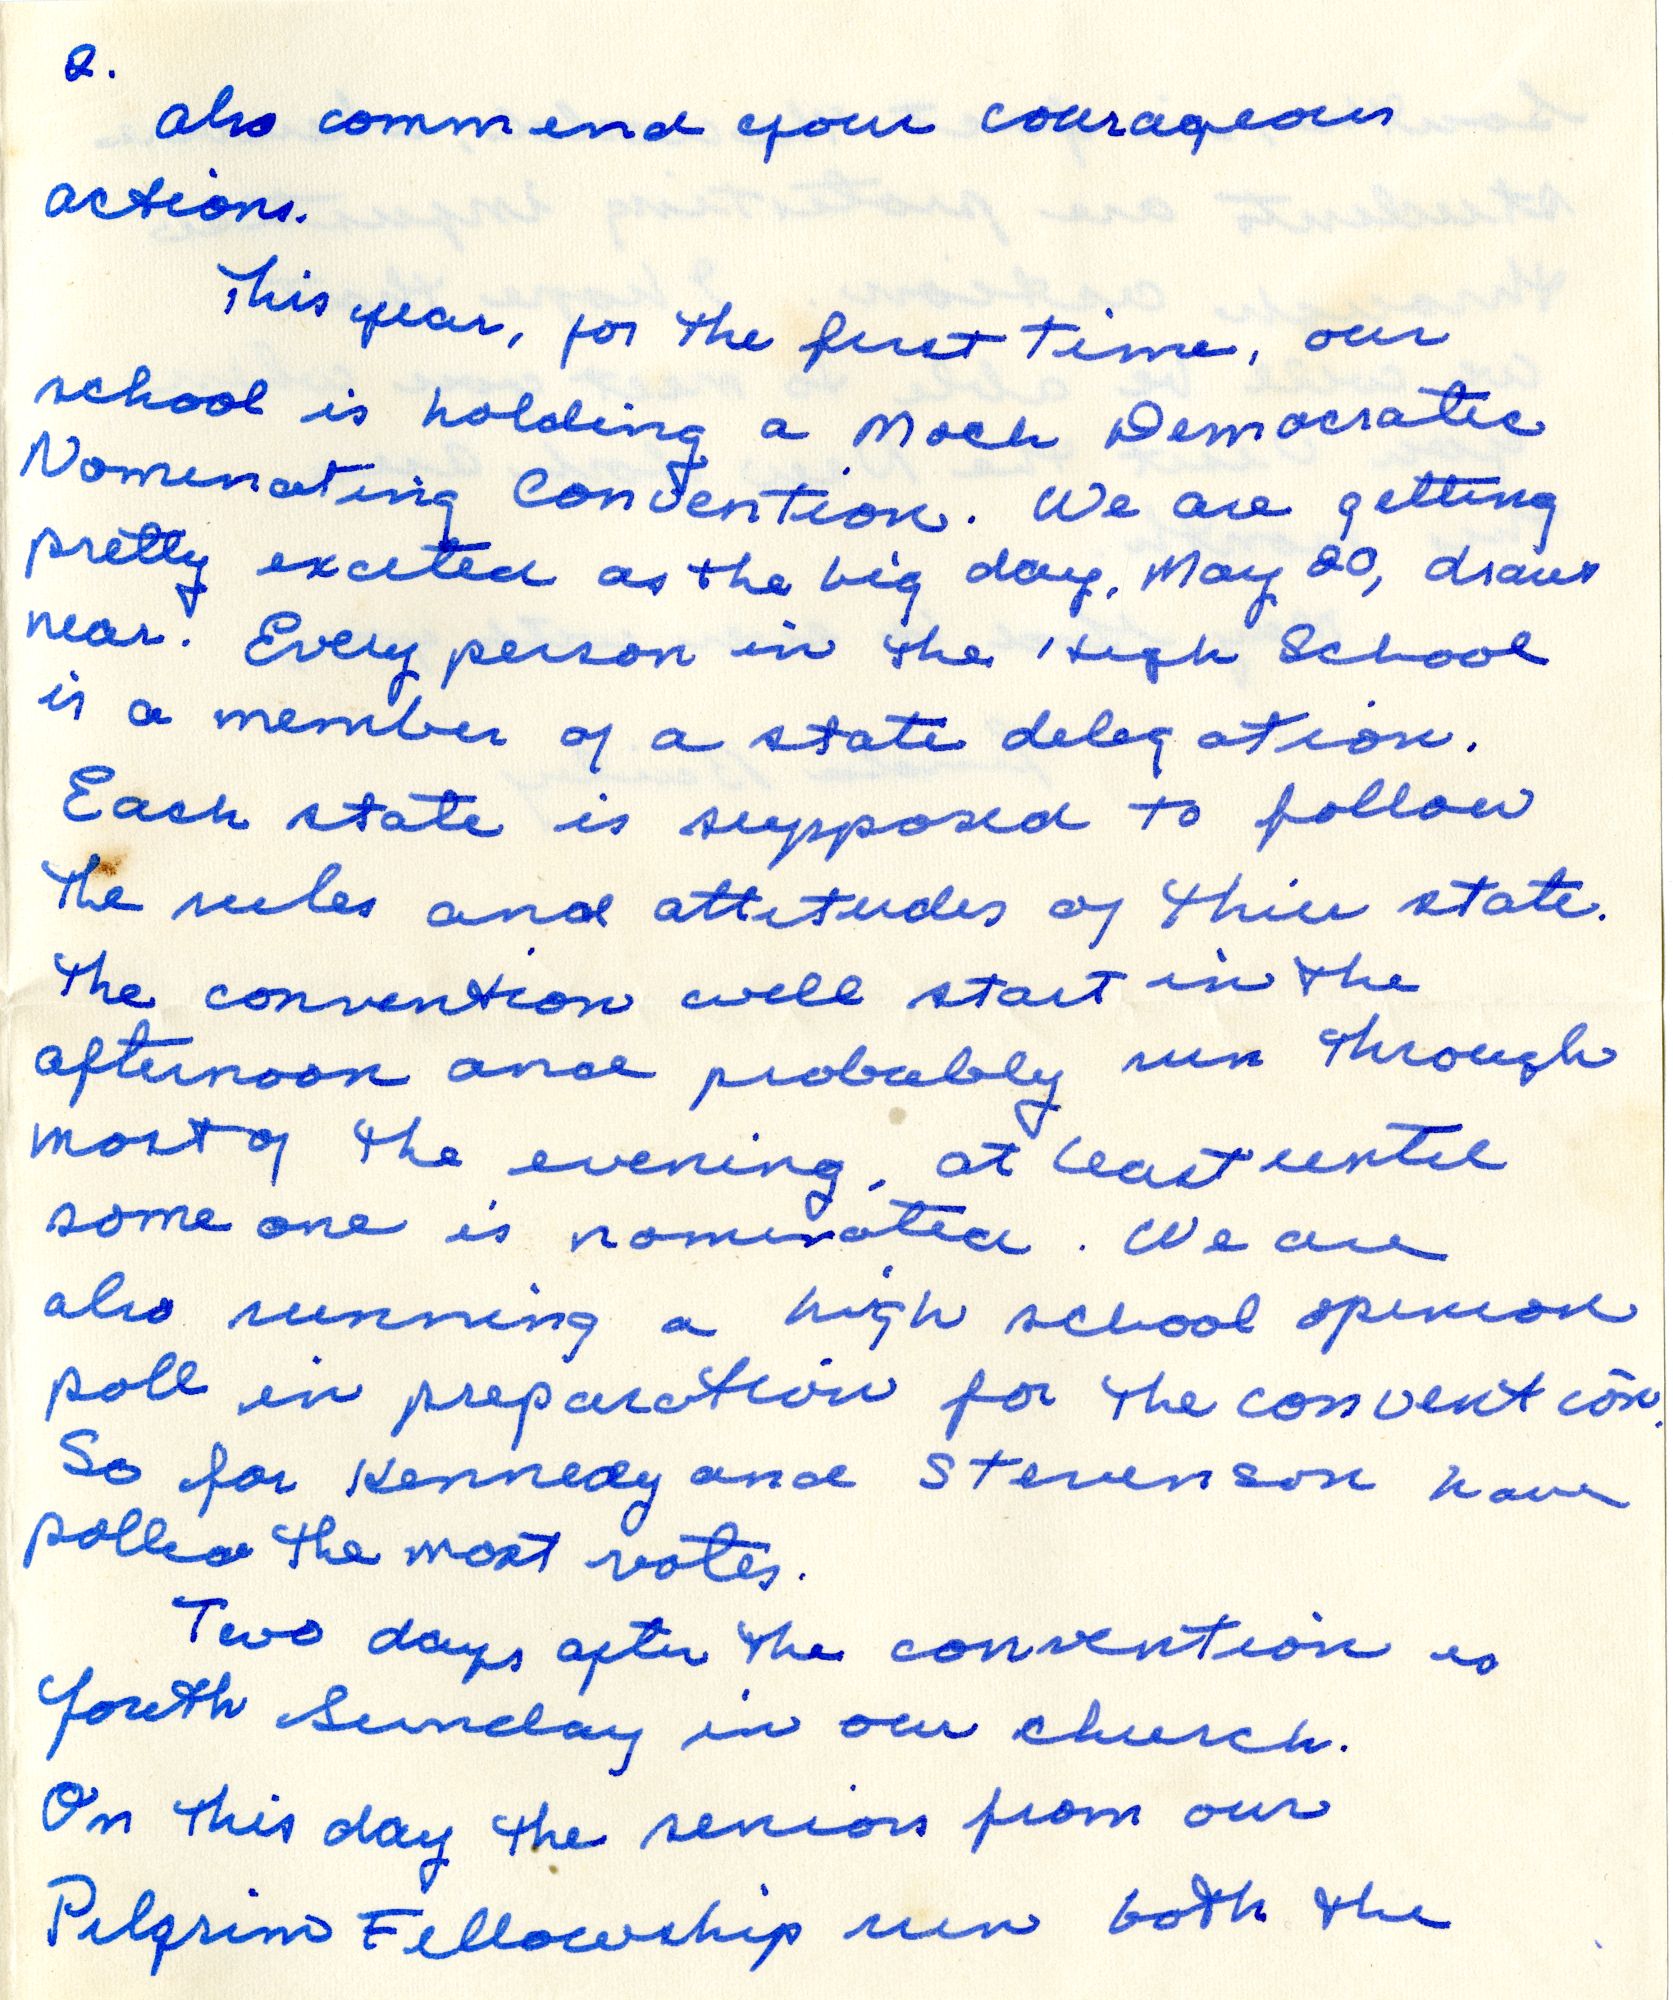 2.
also commend your courageous
actions.
This year, for the first time, our
school is holding a Mock Democratic
Nominating Convention. We are getting
pretty excited as the big day, May 20, draws
near. Every person in the High School
is a member of a state delegation.
Each state is supposed to follow
the rules and attitudes of thier state.
The convention will start in the
afternoon and probably run through
most of the evening, at least until
some one is nominated. We are
also running a high school opinion
poll in preparation for the convention.
So far Kennedy and Stevenson have
polled the most votes.
Two days after the convention is
Youth Sunday in our church.
On this day the seniors from our
Pilgrim Fellowship run both the